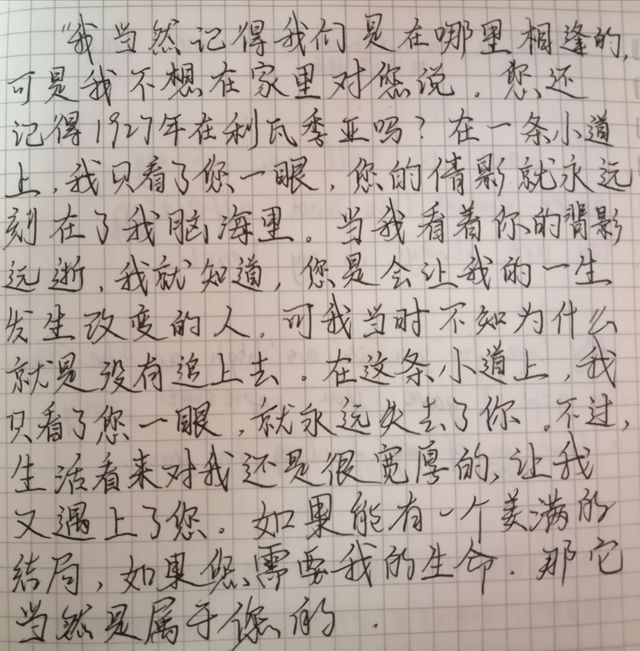 “我当然记得我们是在哪里相逢的,
可是我不想在家里对您说．您还
记得1927年在利瓦季亚吗？在一条小道
上，我只看了您一眼，您的倩影就永远
刻在了我脑海里。当我看着你的背影
远逝，我就知道，您是会让我的一生
发生改变的人．可我当时不知为什么
就是没有追上去。在这条小道上，我
只看了您一眼，就永远失去了你。不过，
生活看来对我还是很宽厚的，让我
又遇上了您．如果能有一个美满的
结局，如果您需要我的生命．那它
当然是属于您的．